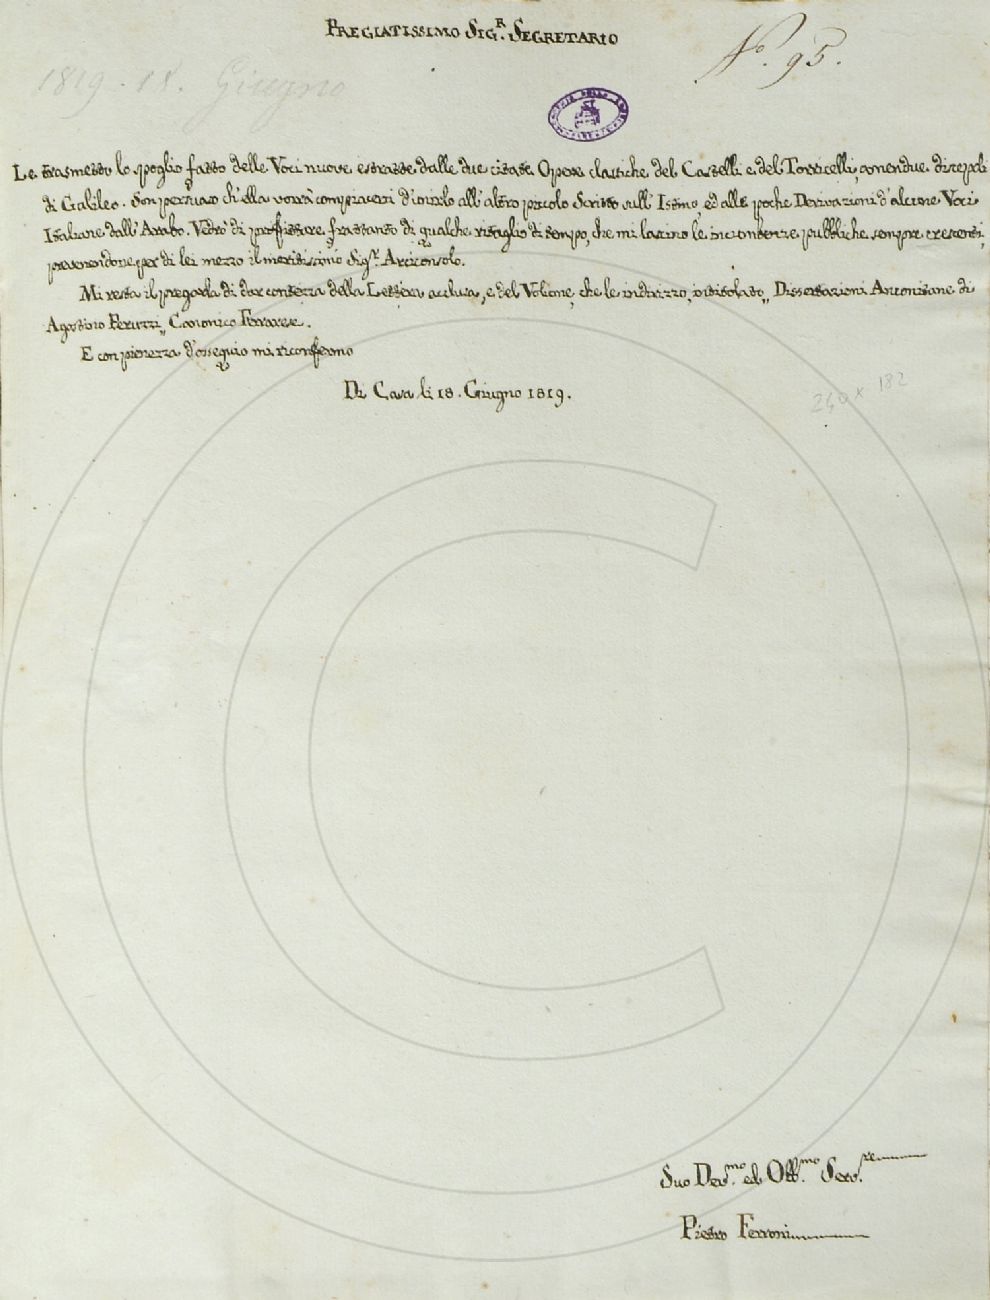 PREGIATISSIMO SIG.R SEGRETARIO
N.o 95.
1819. 18. Giugno
Le trasmetto lo spoglio fatto delle Voci nuove estratte dalle due citate Opere classiche del Castelli e del Torricelli, amendue discepoli
di Galileo. Son persuaso ch'ella vorrà compiacersi d'unirlo all'altro piccolo Scritto sull'Istmo, ed alle poche Derivazioni d'alcune Voci
Italiane dall'Arabo. Vedrò di profittare frattanto di qualche ritaglio di tempo, che mi lascino le incumbenze pubbliche sempre crescenti,
prevenendone per di lei mezzo il meritissimo Sig.r Arciconsolo.
Mi resta il pregarla di dar contezza della Lettera acclusa, e del Volume, che le indirizzo, intitolato „ Dissertazioni Anconitane di
Agostino Peruzzi „ Canonico Ferrarese.
E con pienezza d'ossequio mi riconfermo
Di Casa li 18. Giugno 1819.
240 x 182
Suo Dev.mo ed Obb.mo Serv.re
Pietro Ferroni